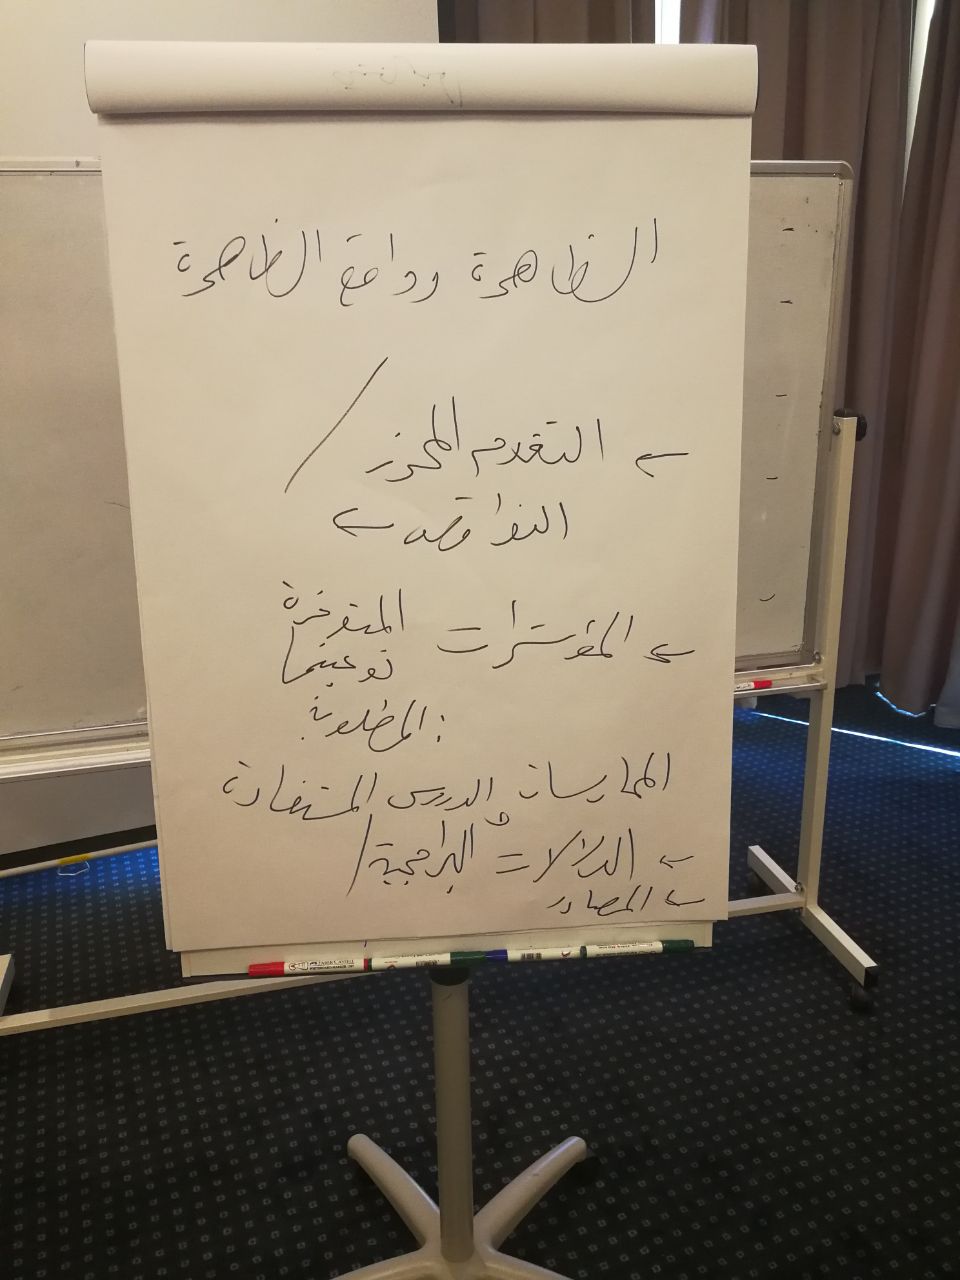 الظاهرة وواقع الظاهرة
← التقدم المحرز /
النواقص ←
← المؤشرات المتوفرة
نوعيتها
: المطلوبة
الممارسات الدروس المستفادة
← الدلالات البرامجية /
← المصادر